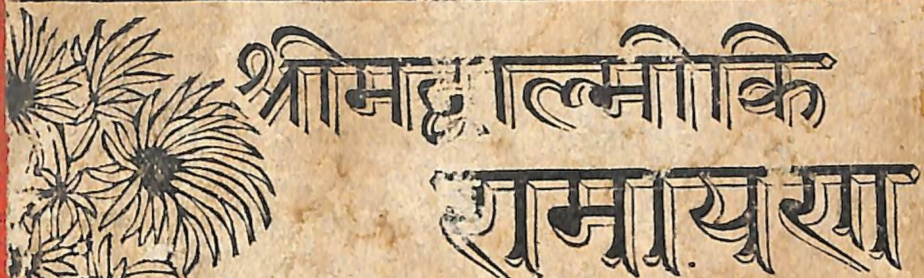 श्रीमद्वाल्मीकि
रामायण